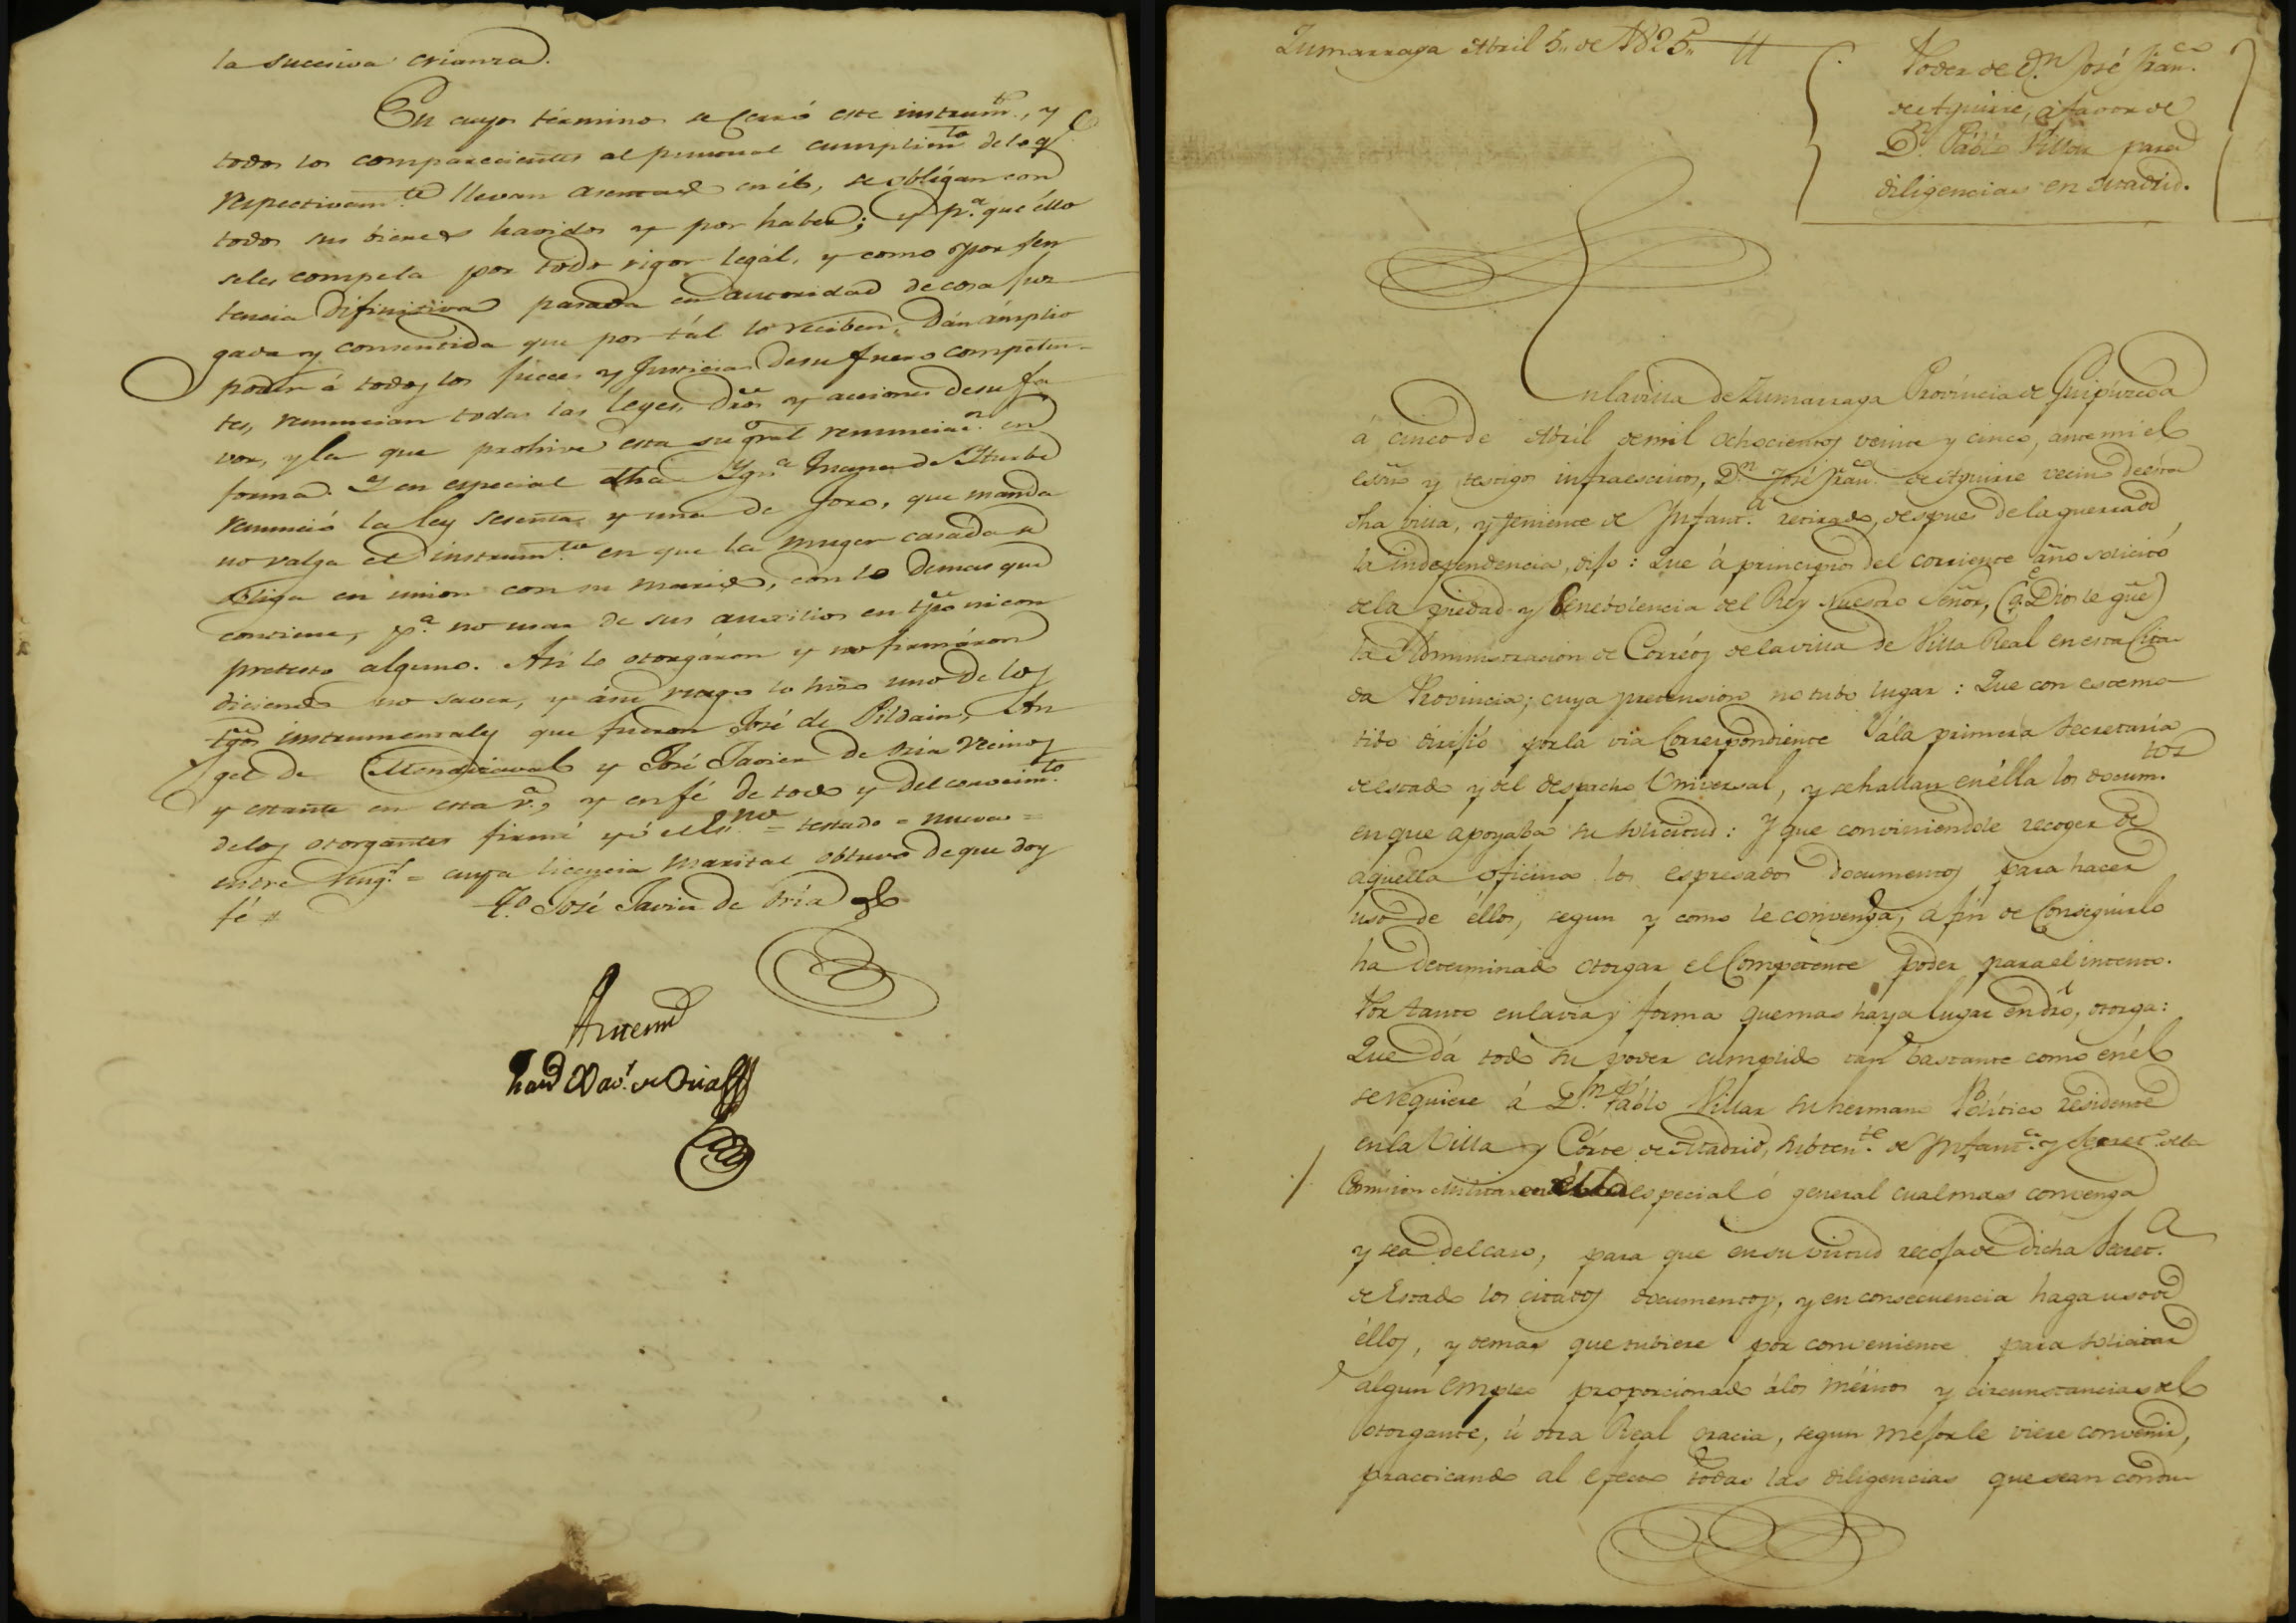 la succesiva crianza.
En cuyos términos se cerró este instrum.to, y
todos los comparecientes al puntual cumplim.to de lo q.e
respectivam.te llevan asentado en él, se obligan con
todos sus bienes havidos y por haber; y p.a que éllo
seles compela por todo rigor legál, y como por sen
tencia difinitiva pasada en autoridad de cosa juz
gada y consentida que por tál lo reciben, dán ámplio
poder á todos los Jueces y Justicias desu fuero competen-
tes, renuncian todas las leyes, dros y acciones desu fa
vor, y la que prohive esta su gral renunciac.n en
forma. Y en especial dha Ygn.a de Yturbe
renunció la ley sesenta y una de Toro, que manda
no valga el instrum.to en que la muger casada se
obliga en union con su marido, con lo demas que
contiene, p.a no usar de sus auxilios en tpo ni con
pretesto alguno. Asi lo otorgáron y no firmáron
diciendo no saver, y á su ruego lo hizo uno de los
tgos instrumentales que fueron José de Pildain, An
gel de Mendizaval y José Javier de Oria vecinos
y estante en esta v.a, y en fé de todo y del conocim.to
delos otorgantes firmé yó el Es.no = testado = nueva =
entre reng.s = cuya licencia marital obtuvo de que doy
fé =
T.o José Javier de Oria
Antemi
Xav.r de Oria
Zumarraga Abril 5,, de 1825,,
Poder de D.n José Fran.co
de Aguirre, á favor de
D.n Páblo Villar para
diligencias en Madrid.
En la villa de Zumarraga Provincia de Guipúzcoa
á cinco de Abril de mil ochocientos veinte y cinco, ante mi el
esño y testigos infraescritos, D.n José Fran.co de Aguirre vecino de esta
dha villa, y Teniente de Infant.a retirado, despues de la guerra de
la independencia, dijo: Que á principios del corriente año solicitó
de la piedad y benebolencia del Rey Nuestro Señor, (q.e Dios le güe)
la Administracion de Corréos de la villa de Villa Real en esta Cita
da Provincia; cuya pretension no tubo lugar: Que con este mo
tibo dirijió por la via Correspondiente á la primera Secretaría
de estado y del despacho Universal, y se hallan en élla los docum.tos
en que apoyaba su solicitud: Y que conviniendole recoger de
aquella oficina los espresados documentos para hacer
uso de éllos, segun y como le convenga; á fin de Conseguirlo
ha determinado otorgar el Competente poder para el intento.
Por tanto en la via y forma que mas haya lugar en dro, otorga:
Que dá todo su poder cumplido tan bastante como en él
se requiere á D.n Páblo Villar su hermano Político residente
en la Villa y Córte de Madrid, Subten.te de Infant.a y Secret.o de la
Comision Militar en élla especial ó general cual mas convenga
y sea del caso, para que en su virtud recoja de dicha Secret.a
de Estado los citados documentos, y en consecuencia haga uso de
éllos, y demas que tubiere por conveniente para solicitar
algun empleo proporcionado á los méritos y circunstancias del
otorgante, ú otra Real gracia, segun mejor le viere convenir,
practicando al efecto todas las diligencias que sean condu